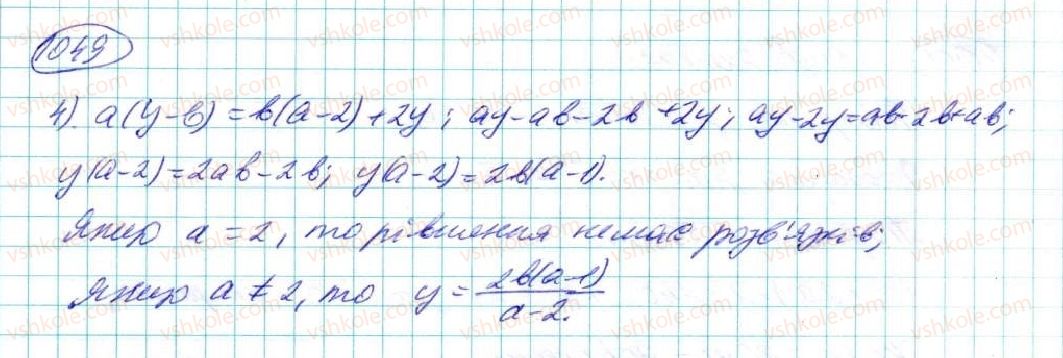 1049
4). a(y-b)=b(a-2)+2y; ay-ab-2b+2y; ay-2y=ab-2b+ab;
y(a-2)=2ab-2b; y(a-2)=2b(a-1).
Якщо a=2, то рівняння немає розв'язків;
якщо a≠2, то y=2b(a-1)/a-2.